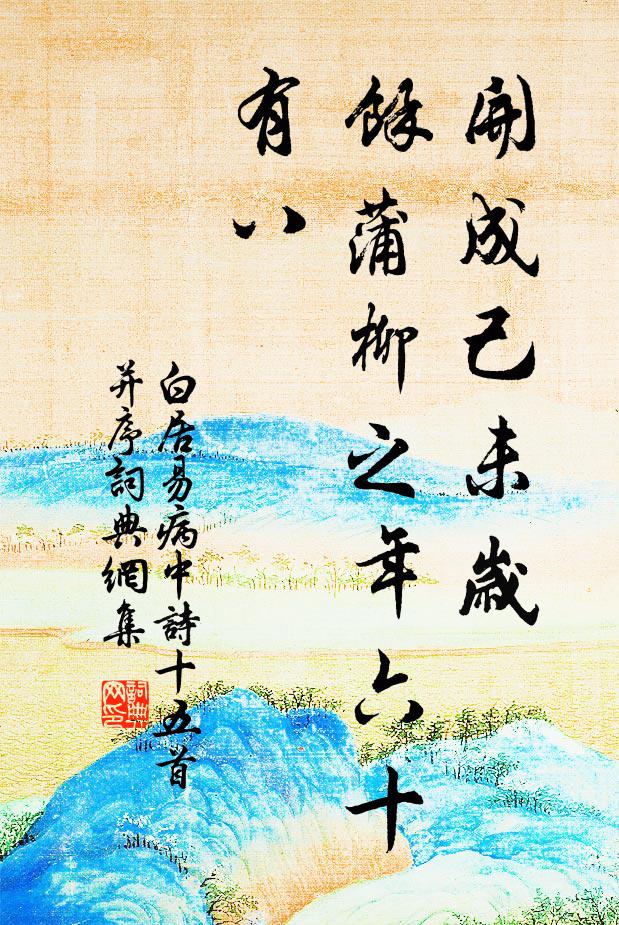 開成己未歲
餘蒲柳之年六十
有八
白居易病中詩十五首
并序詞典網集
詞典
网印